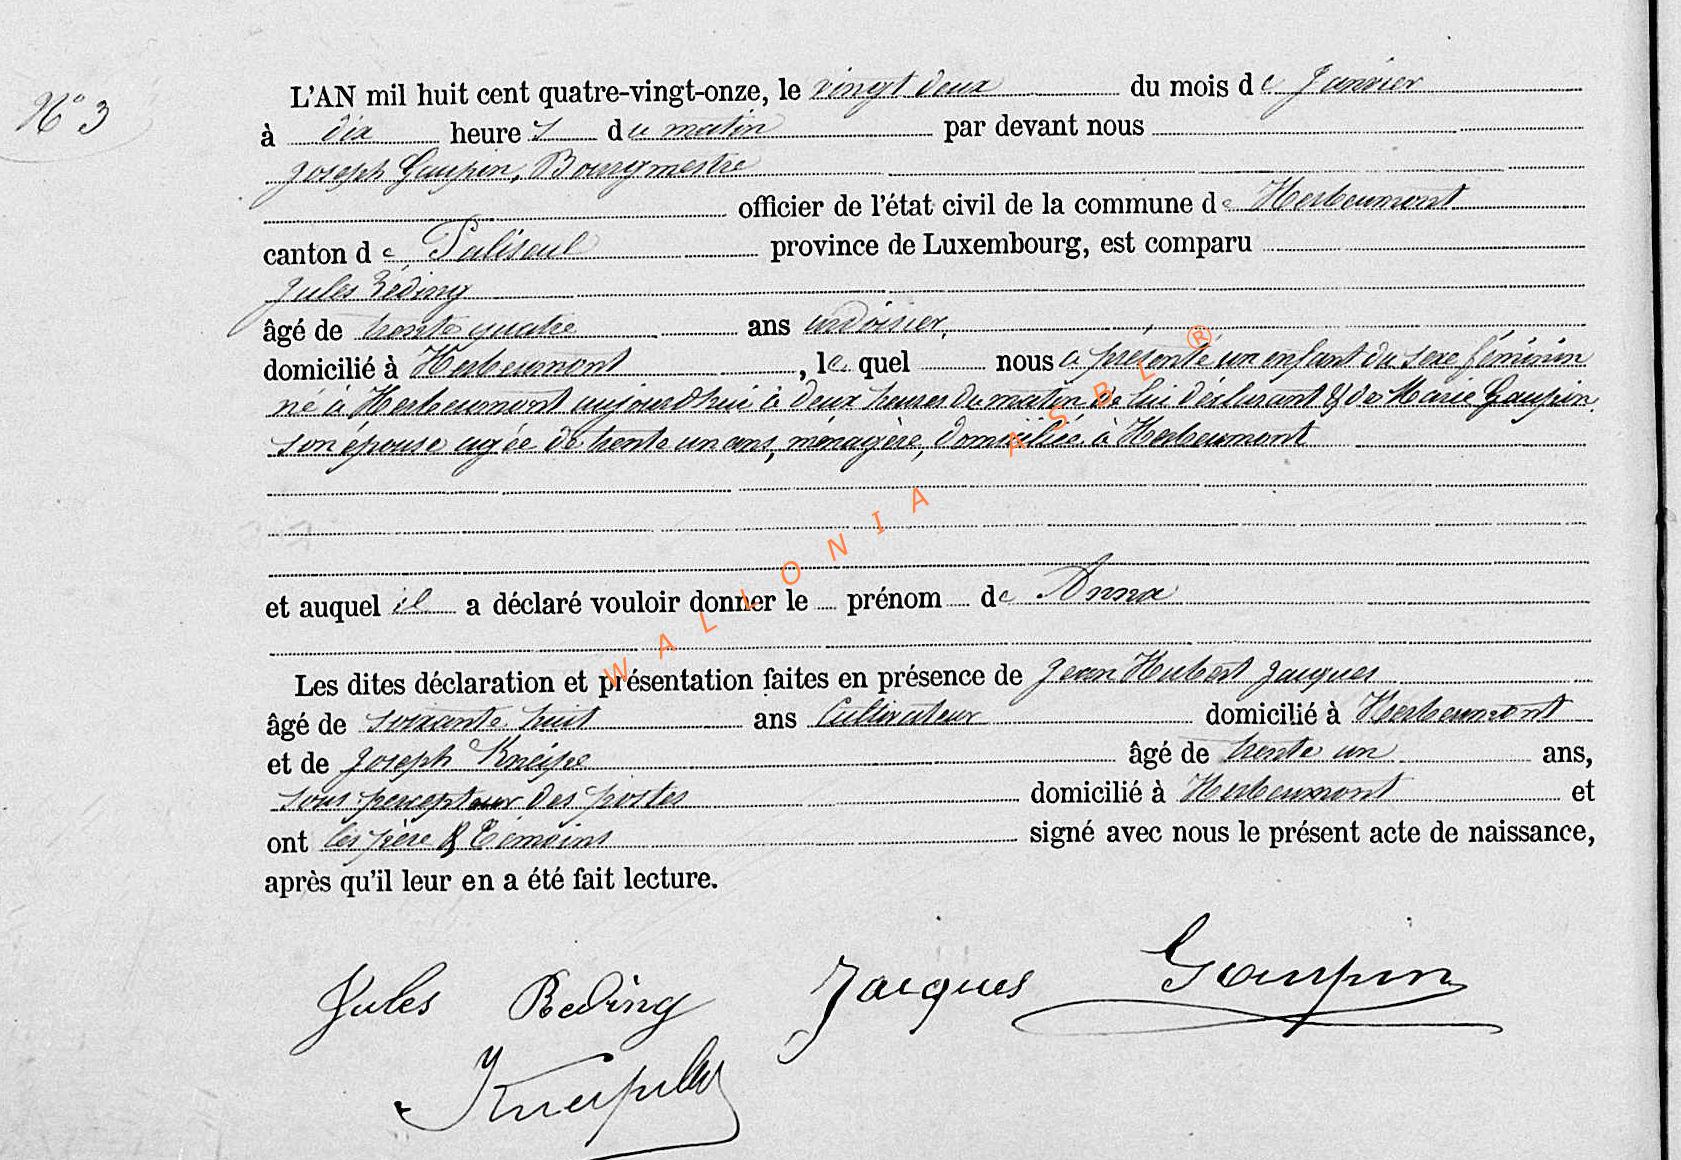 N° 3
L'AN mil huit cent quatre-vingt-onze, le vingt deux du mois de Janvier
à dix heures du matin par devant nous
Joseph Gaupin, Bourgmestre
officier de l'état civil de la commune de Herbeumont
canton de Paliseul province de Luxembourg, est comparu
Jules Réding
âgé de trente quatre ans ardoisier,
domicilié à Herbeumont, le quel nous a présenté un enfant du sexe féminin
né à Herbeumont aujourdhui à deux heures du matin de lui déclarant & de Marie Gaupin,
son épouse agée de trente un ans, ménagère, domiciliée à Herbeumont
et auquel il a déclaré vouloir donner le prénom de Anna
Les dites déclaration et présentation faites en présence de Jean Hubert Jacques
âgé de soixante huit ans Cultivateur domicilié à Herbeumont
et de Joseph Kneipe âgé de trente un ans,
sous percepteur des postes domicilié à Herbeumont et
ont les père & témoins signé avec nous le présent acte de naissance,
après qu'il leur en a été fait lecture.
Jules Reding Jacques Gaupin
WALLONIA ASBL ®